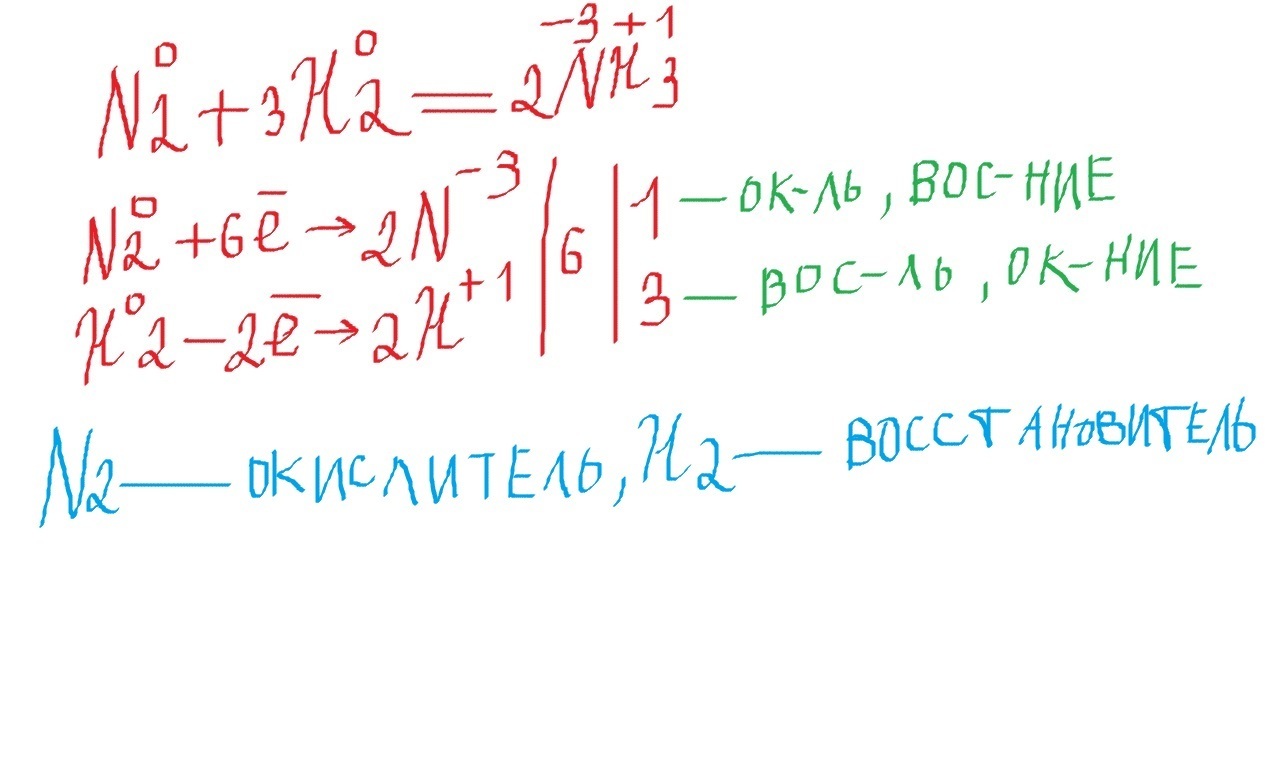 N₂⁰ + 3H₂⁰ = 2N⁻³H⁺¹₃
N₂⁰ + 6ē → 2N⁻³ | 6 | 1 — ок-ль, вос-ние
H⁰₂ − 2ē → 2H⁺¹ | | 3 — вос-ль, ок-ние
N₂ — окислитель, H₂ — восстановитель